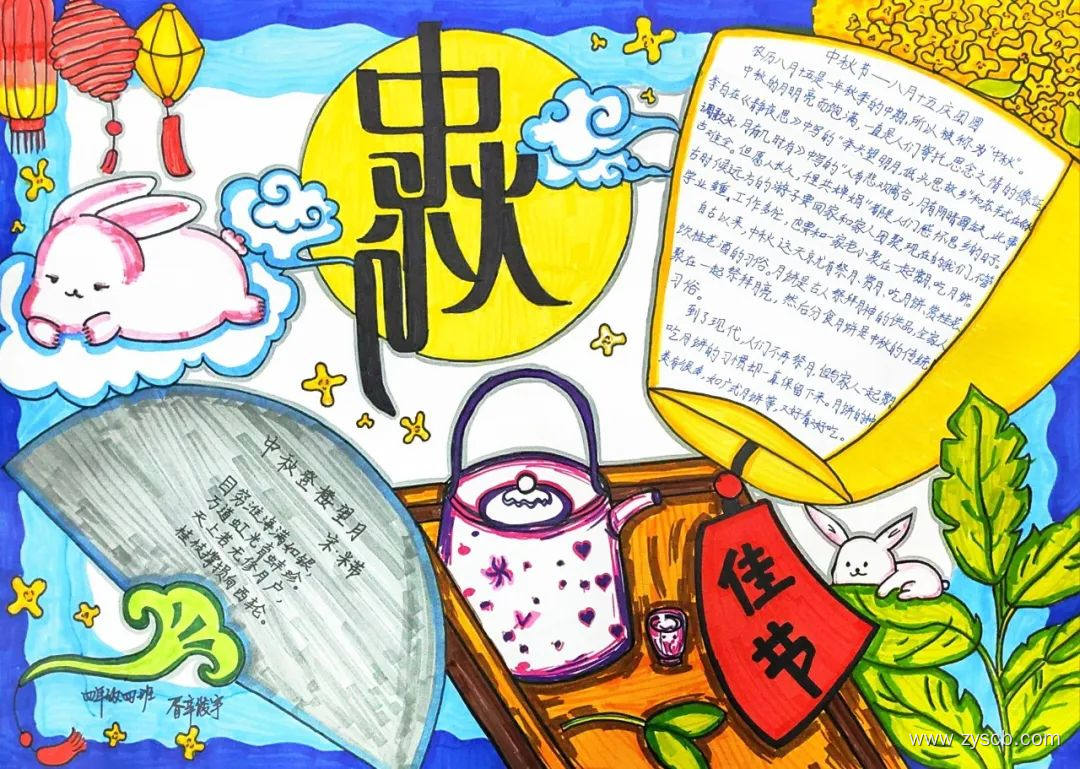 中秋
佳节
中秋节——八月十五庆团圆
农历八月十五是一年秋季的中期,所以被称为“中秋”。
中秋的月明亮而饱满,一直是人们寄托思念之情的像征
李白在《静夜思》中写的“举头望明月,低头思故乡”和苏轼在《水
调歌头,月有几时有》中写的“人有悲欢离合,月有阴晴圆缺,此事
古难全。但愿人长久,千里共婵娟”都是人们抒怀思乡的句子。
古时候远方的游子要回家和家人团聚,现在的我们,不管
学业重,工作多忙,也要和一家老小聚在一起赏月,吃月饼。
自古以来,中秋这天就有祭月、赏月、吃月饼、赏桂花、
饮桂花酒的习俗。月饼是古人祭拜月神的供品,全家人
聚在一起祭拜月亮,然后分食月饼是中秋的传统
习俗。
到了现代,人们不再祭月,但与家人一起赏月
吃月饼的习惯却一直保留下来。月饼的种
类有很多,如广式月饼等,又好看又好吃。
中秋登楼望月
宋 米芾
目穷淮海满如银,
万道虹光育蚌珍。
天上若无修月户,
桂枝撑损向西轮。
四年级四班
www.zyscb.com